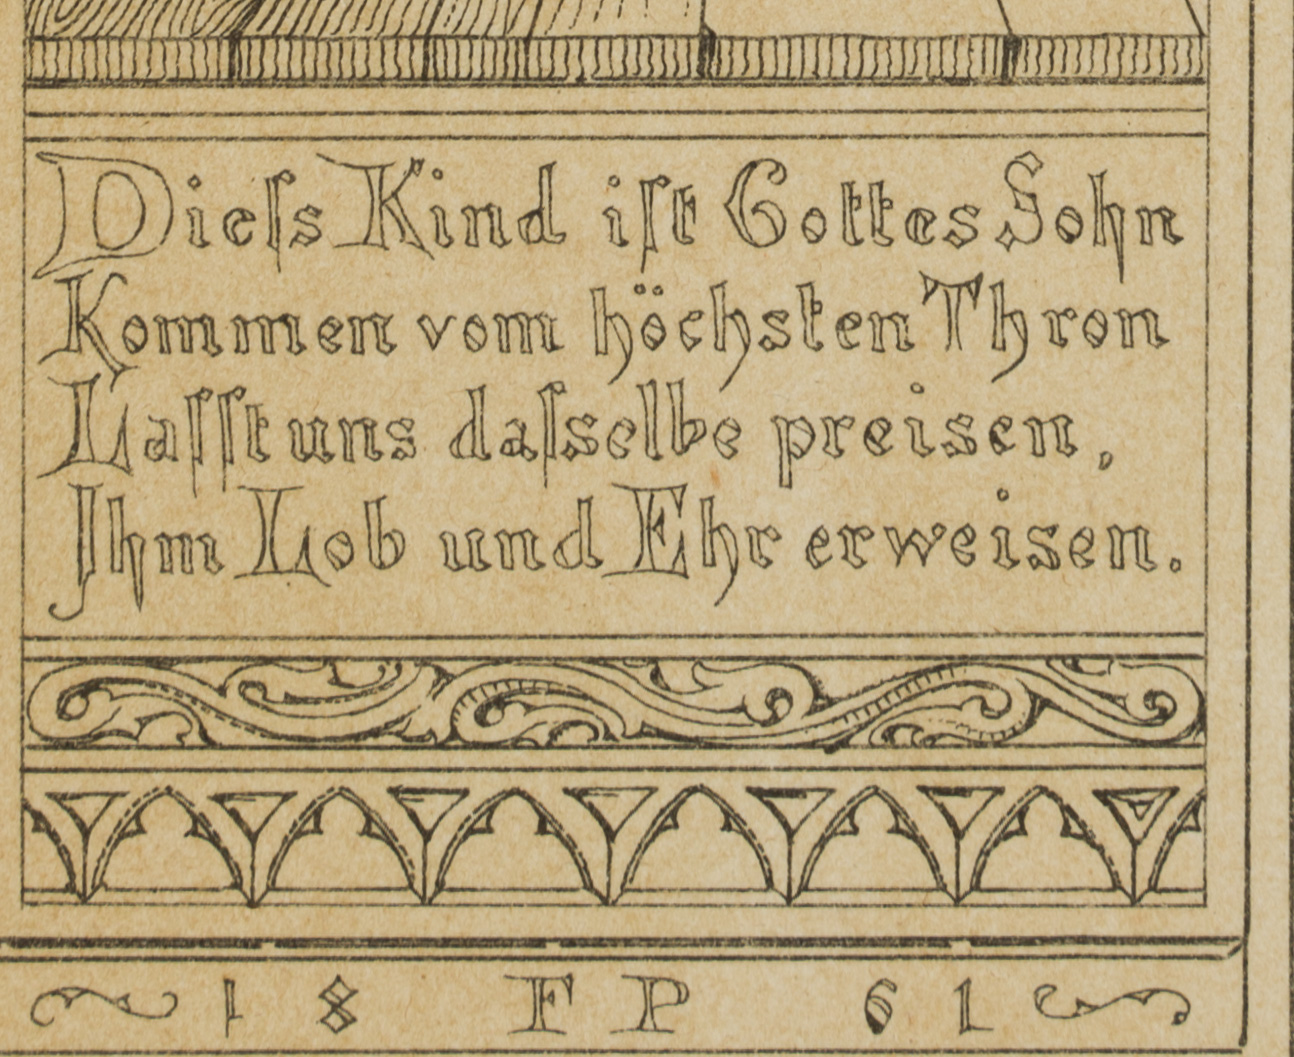 Dieſs Kind iſt Gottes Sohn
Kommen vom höchsten Thron
Laſſt uns daſselbe preisen,
Ihm Lob und Ehr erweisen.
18 FP 61